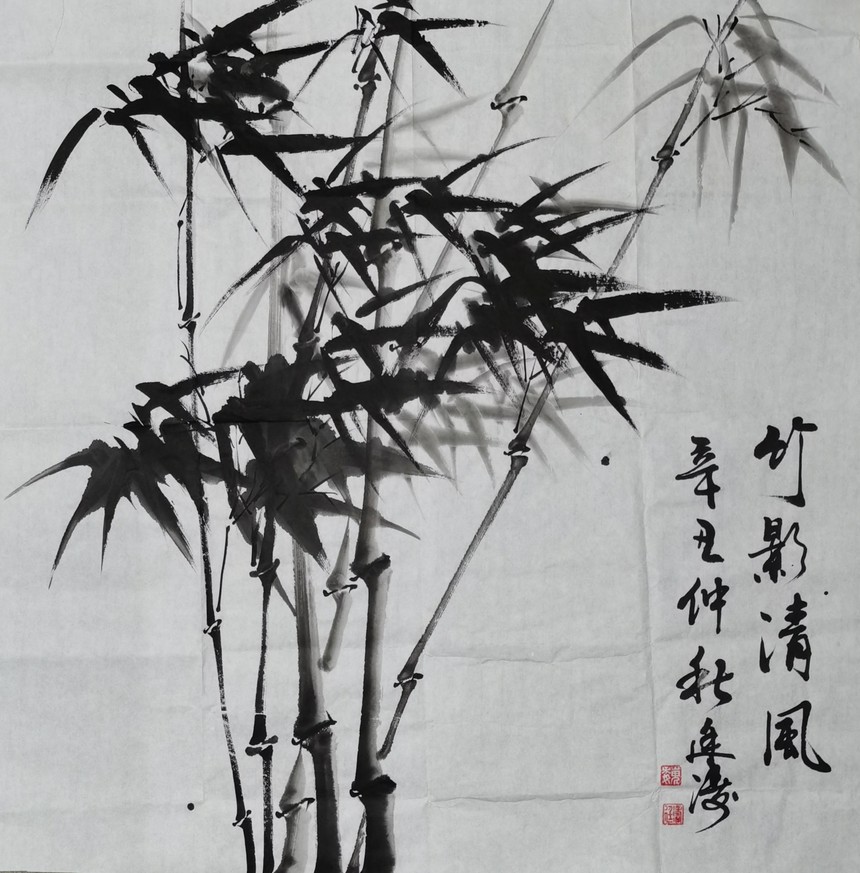 竹影清風
辛丑仲秋